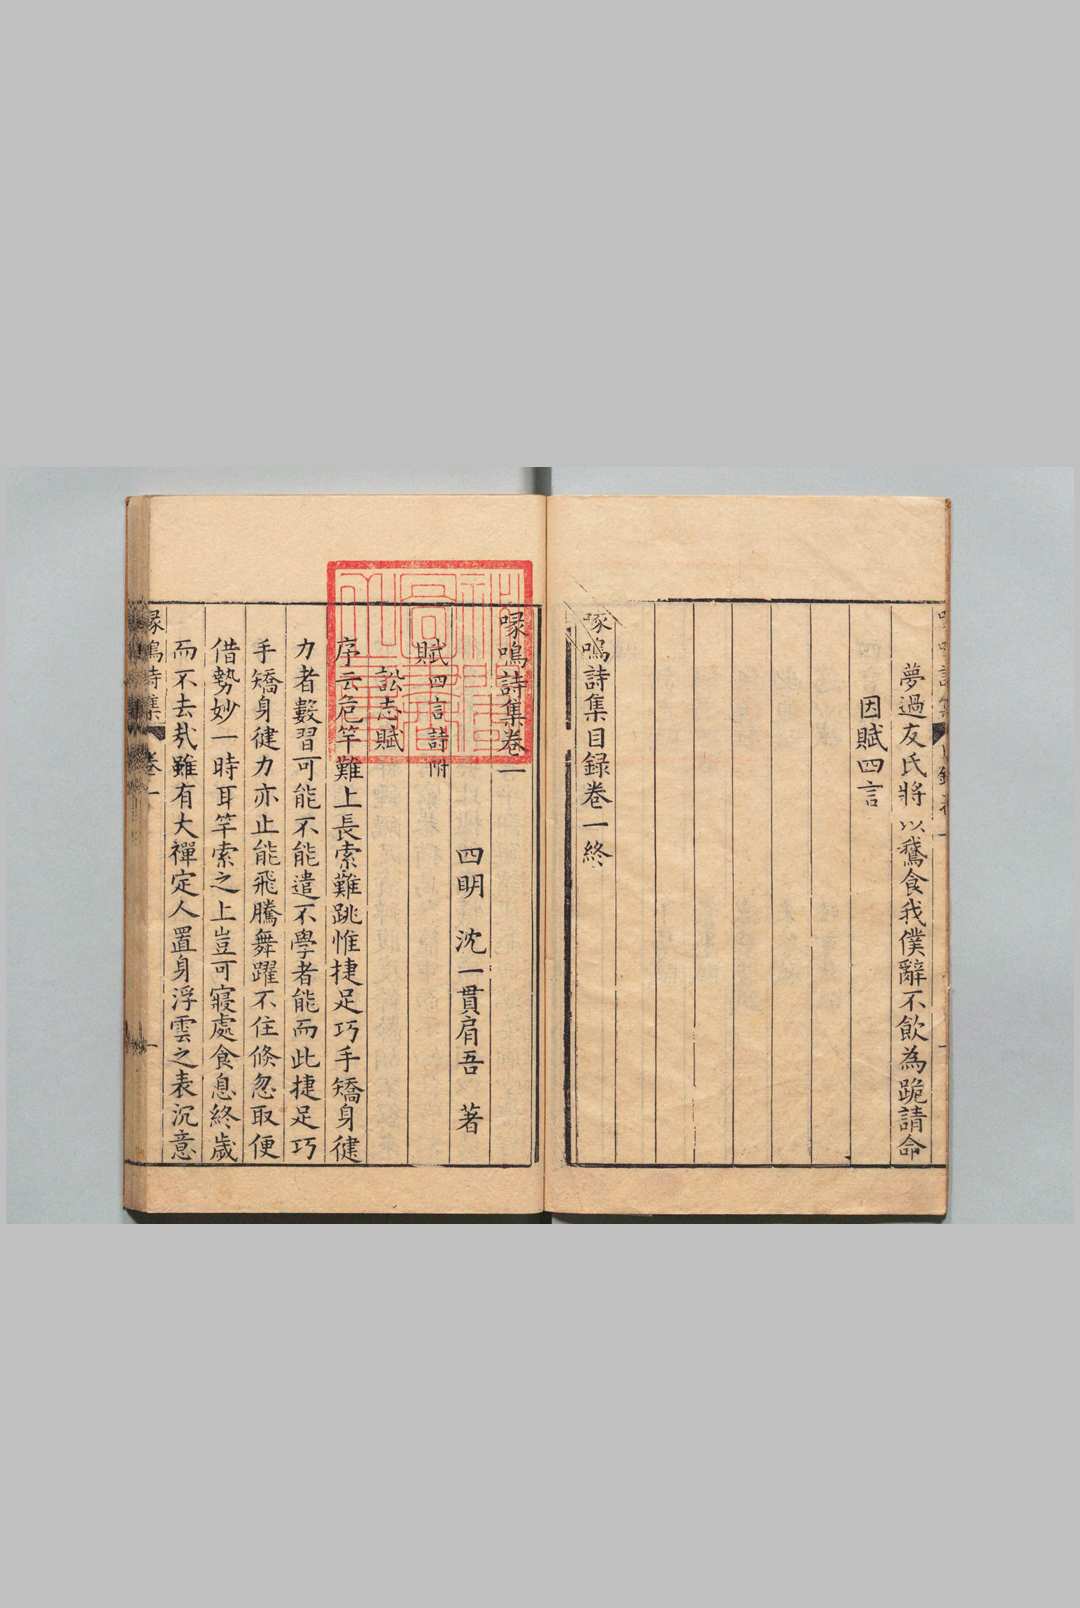 夢過友氏將以鵞食我僕辭不飲為跪請命
因賦四言
喙鳴詩集目録卷一終
喙鳴詩集卷一
四明 沈一貫肩吾 著
賦四言詩附
訟志賦
序云危竿難上長索難跳惟捷足巧手矯身健
力者數習可能不能遣不學者能而此捷足巧
手矯身健力亦止能飛騰舞躍不住倏忽取便
借勢妙一時耳竿索之上豈可寢處食息終歲
而不去㦲雖有大禪定人置身浮雲之表沉意
喙鳴詩集 卷一 一